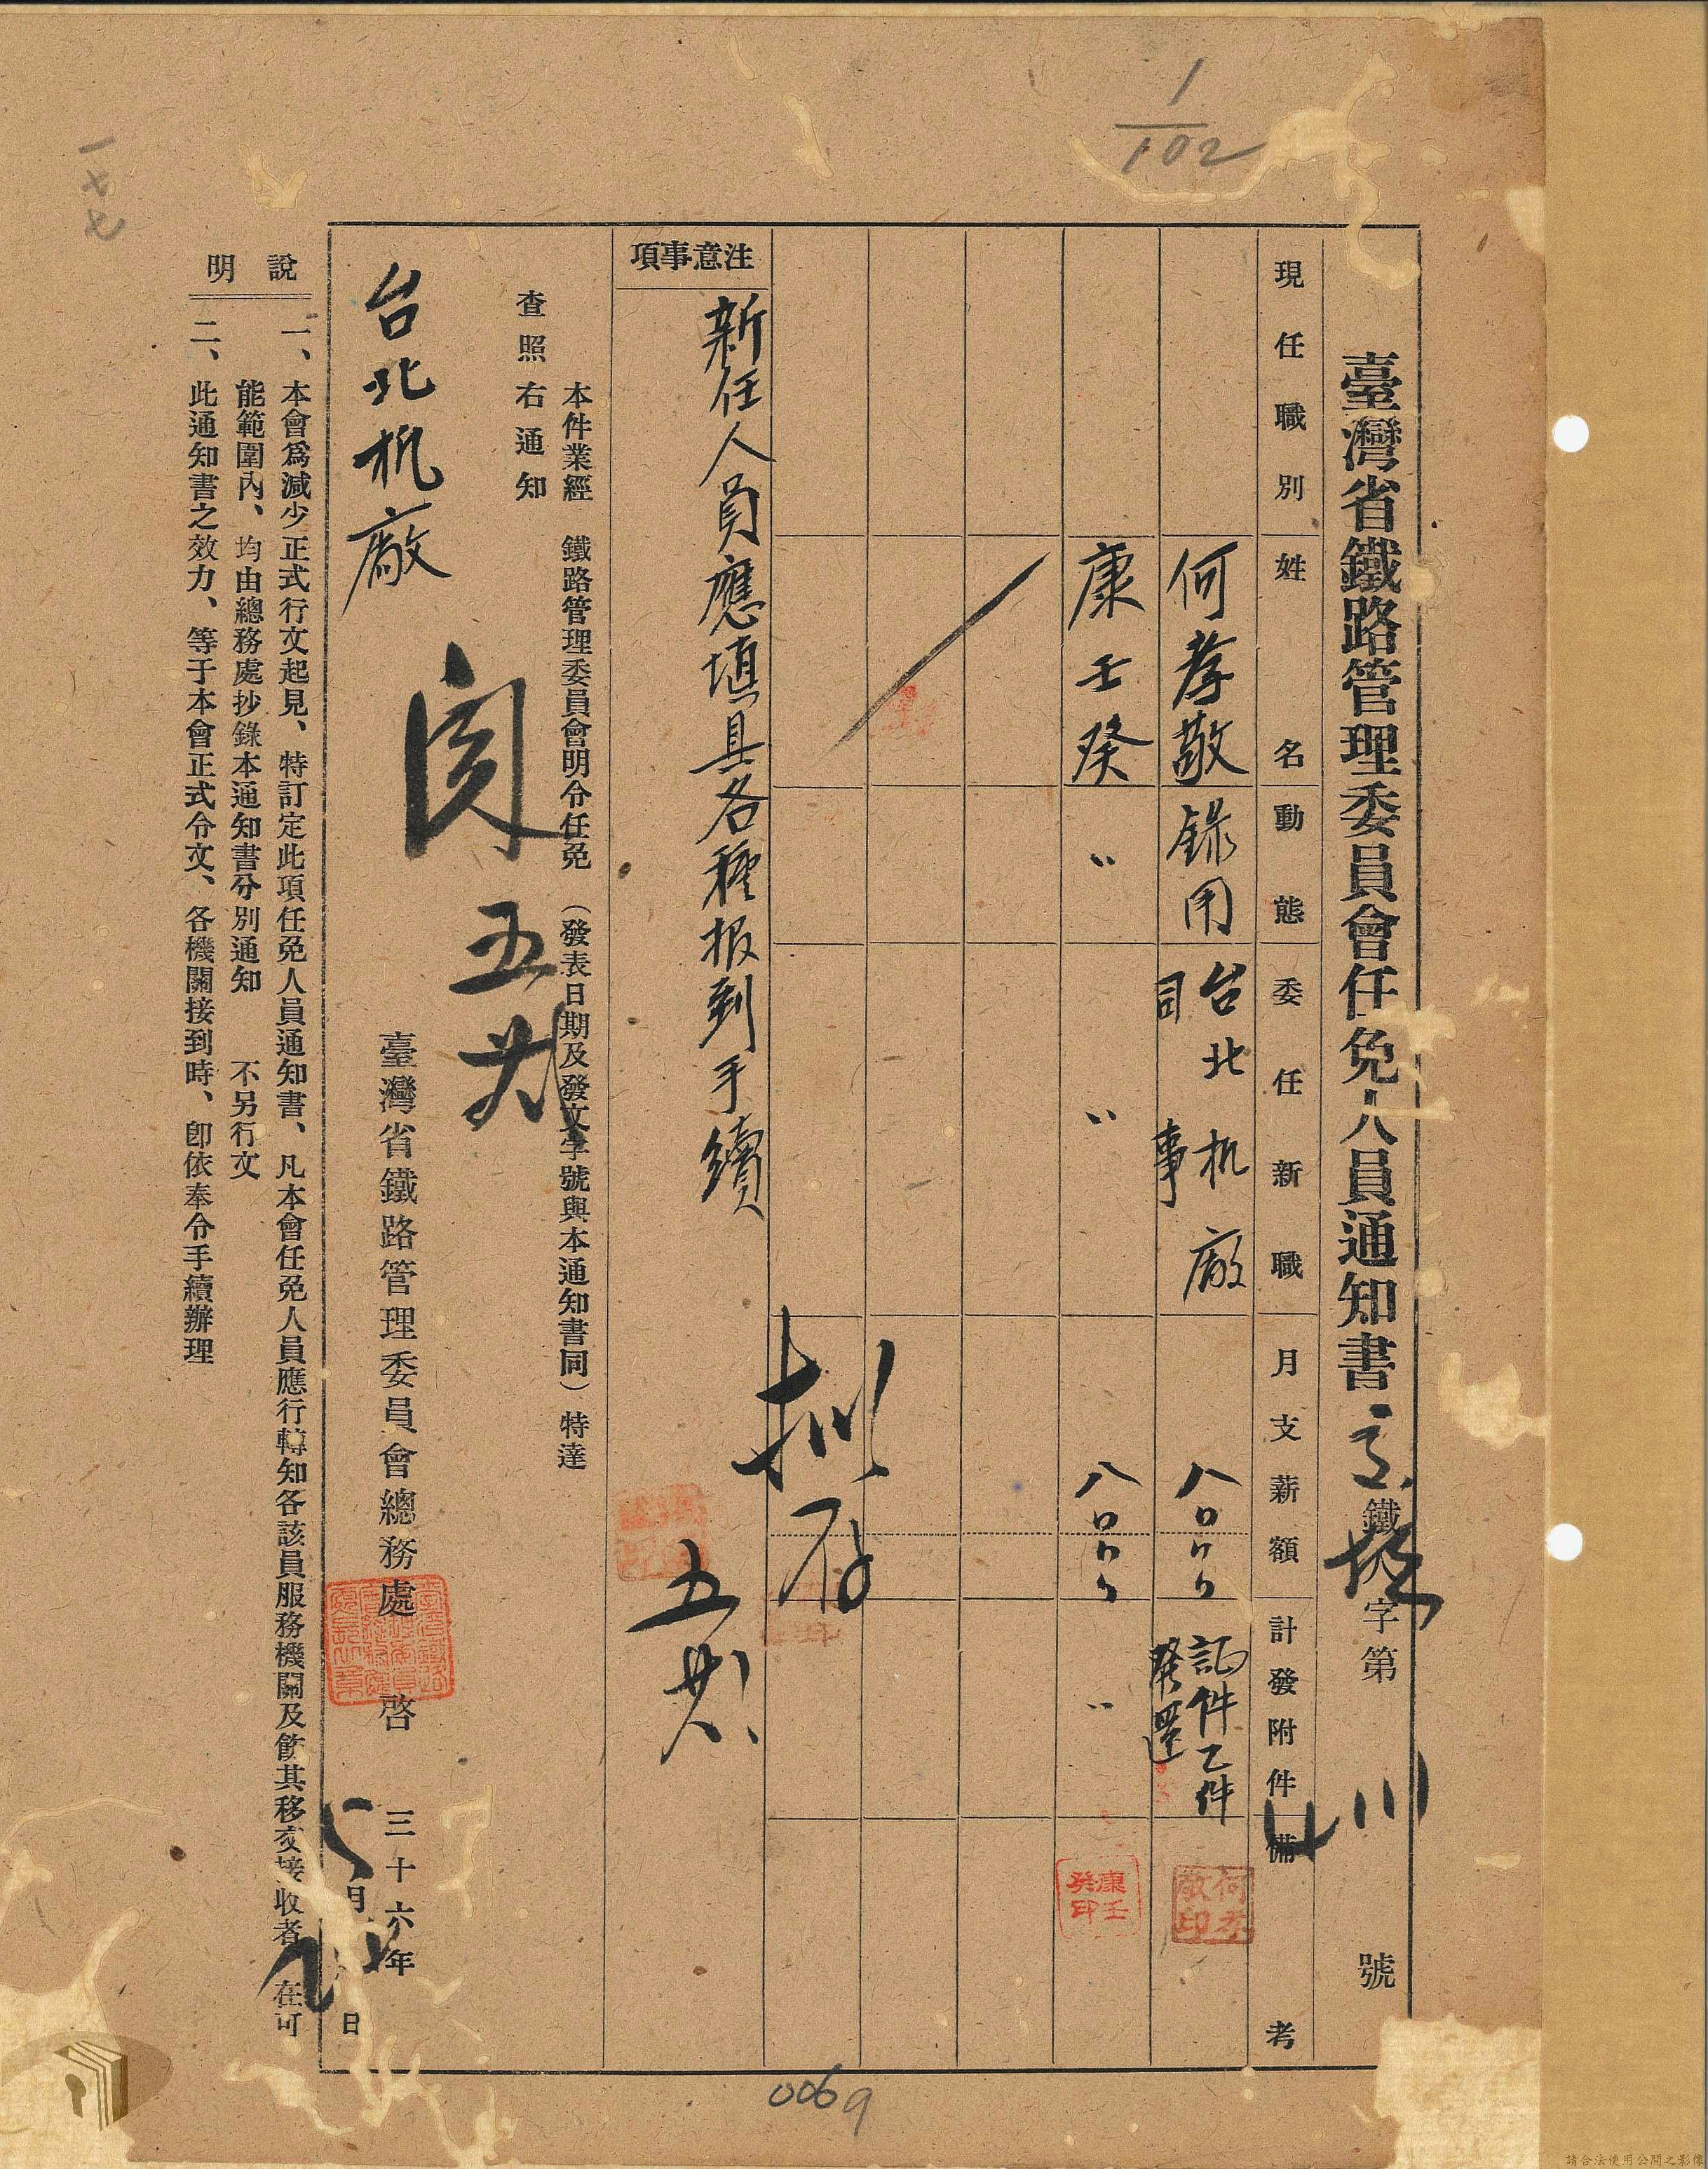 1/102
一七七
臺灣省鐵路管理委員會任免人員通知書 鐵 字第 號
現任職別 姓名 動態 委任新職 月支薪額 計發附件 備考
何孝敬 錄用 台北机廠司事 八〇 証件乙件發還
何孝敬印
康壬癸 〃 〃 八〇 〃
康壬癸印
注意事項
新任人員應填具各種报到手續
拟存
五廿
本件業經 鐵路管理委員會明令任免(發表日期及發文字號與本通知書同)特達
查照右通知
台北机廠
閱
五廿
臺灣省鐵路管理委員會總務處 啓
三十六年
月 日
說明
一、本會爲減少正式行文起見、特訂定此項任免人員通知書、凡本會任免人員應行轉知各該員服務機關及飭其移交接收者 在可
能範圍內、均由總務處抄錄本通知書分別通知 不另行文
二、此通知書之效力、等于本會正式令文、各機關接到時、卽依奉令手續辦理
0069
請合法使用公開之影像